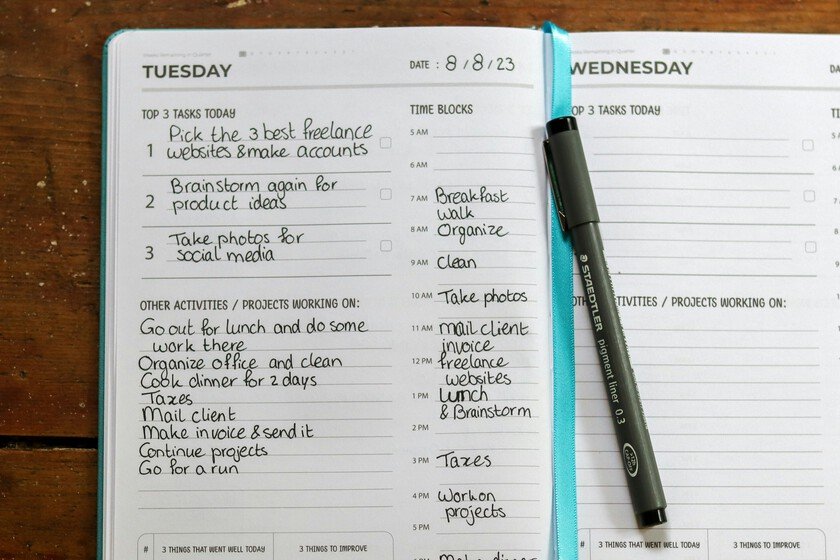 Weeks Remaining in Quarter
TUESDAY
DATE : 8/8/23
TOP 3 TASKS TODAY
1 Pick the 3 best freelance
websites & make accounts
2 Brainstorm again for
product ideas
3 Take photos for
social media
OTHER ACTIVITIES / PROJECTS WORKING ON:
Go out for lunch and do some
work there
Organize office and clean
Cook dinner for 2 days
Taxes
Mail client
Make invoice & send it
Continue projects
Go for a run
# 3 THINGS THAT WENT WELL TODAY 3 THINGS TO IMPROVE
TIME BLOCKS
5 AM
6 AM
7 AM Breakfast
walk
8 AM Organize
9 AM Clean
10 AM Take photos
11 AM Mail client
invoice
12 PM freelance
websites
1 PM Lunch
& Brainstorm
2 PM
3 PM Taxes
4 PM Work on
projects
5 PM
Make dinner
STAEDTLER pigment liner 0.3
WEDNESDAY
DA
TOP 3 TASKS TODAY
TI
5
6
7
8
9
OTHER ACTIVITIES / PROJECTS WORKING ON:
# 3 THINGS THAT WENT WELL TODAY 3 THINGS TO IMPROVE